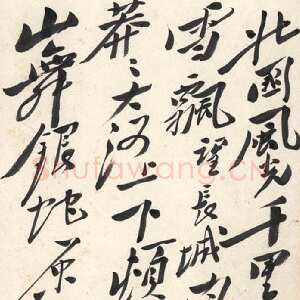 北国風光千里
雪飄望長城内
莽々大河上下頓
山舞銀蛇原
Shufawang.CN